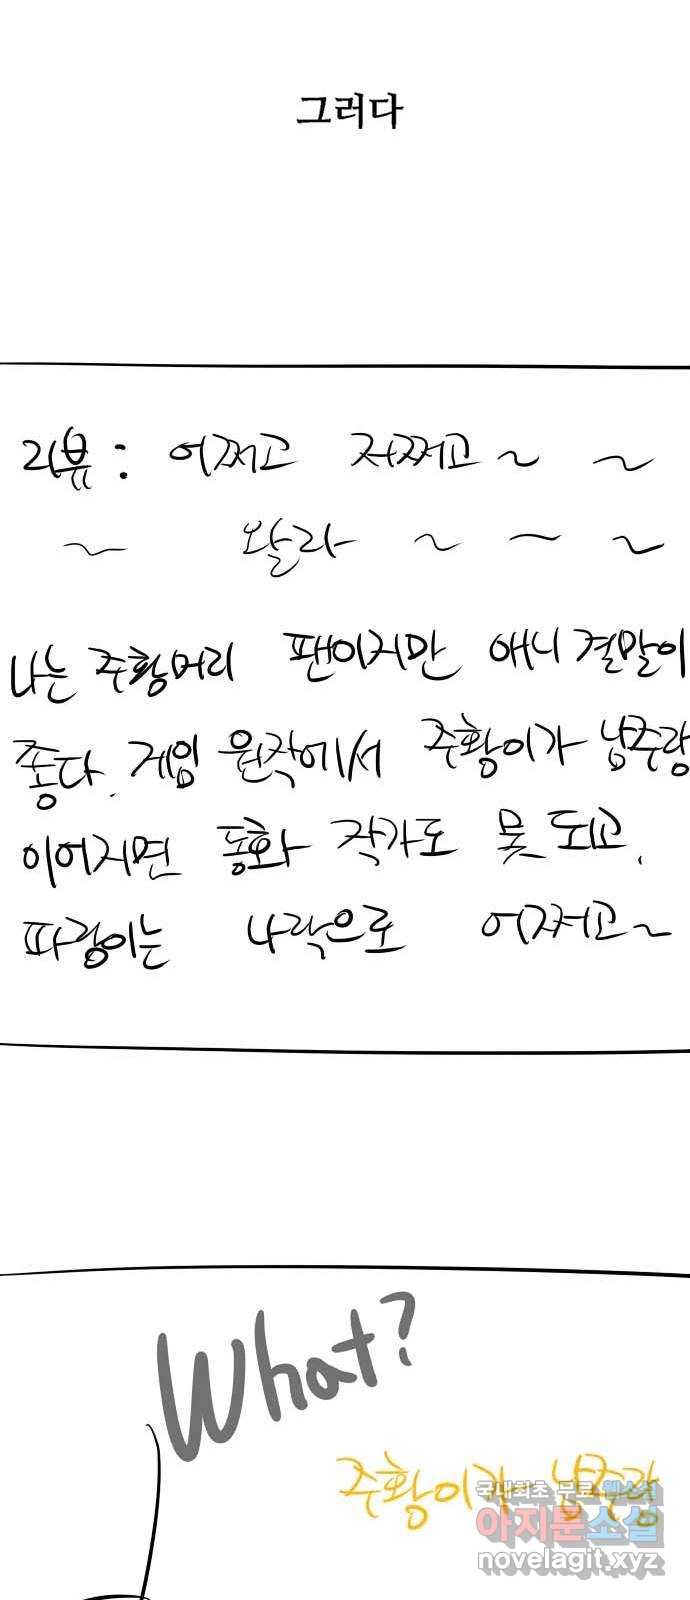 그러다
리뷰 : 어쩌고 저쩌고 ~ ~
~ 왈라 ~ ~ ~
나는 주황머리 팬이지만 애니 결말이
좋다. 게임 원작에서 주황이가 남주랑
이어지면 동화 작가도 못 되고.
파랑이는 나락으로 어쩌고~
What?
주황이가 남주랑
국내최초 무료 웹소설
아지툰소설
novelagit.xyz